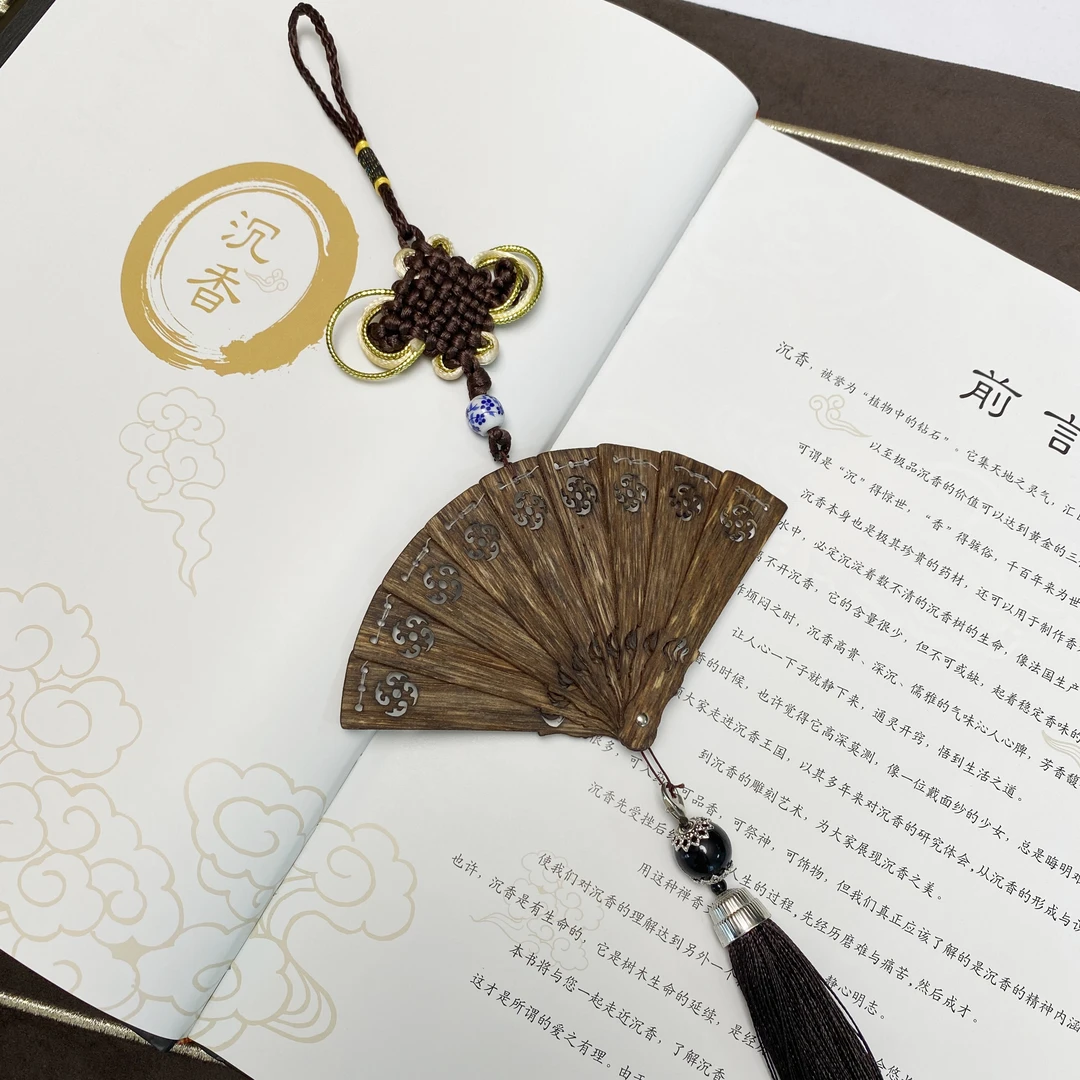 沉
香
前言
沉香，被誉为“植物中的钻石”。它集天地之灵气，汇
以至极品沉香的价值可以达到黄金的三
可谓是“沉”得惊世，“香”得骇俗，千百年来为世
沉香本身也是极其珍贵的药材，还可以用于制作香
水中，必定沉淀着数不清的沉香树的生命，像法国生产
不开沉香，它的含量很少，但不可或缺，起着稳定香味的
烦闷之时，沉香高贵、深沉、儒雅的气味沁人心脾，芳香馥
让人心一下子就静下来，通灵开窍，悟到生活之道。
香的时候，也许觉得它高深莫测，像一位戴面纱的少女，总是晦明难
大家走进沉香王国，以其多年来对沉香的研究体会，从沉香的形成与
到沉香的雕刻艺术，为大家展现沉香之美。
很多，可入 可品香，可祭神，可饰物，但我们真正应该了解的是沉香的精神内涵
沉香先受挫后 生的过程，先经历磨难与痛苦，然后成才。
用这种禅香 静心明志。
使我们对沉香的理解达到另外一
也许，沉香是有生命的，它是树木生命的延续，是经
本书将与您一起走近沉香，了解沉香
这才是所谓的爱之有理。由于